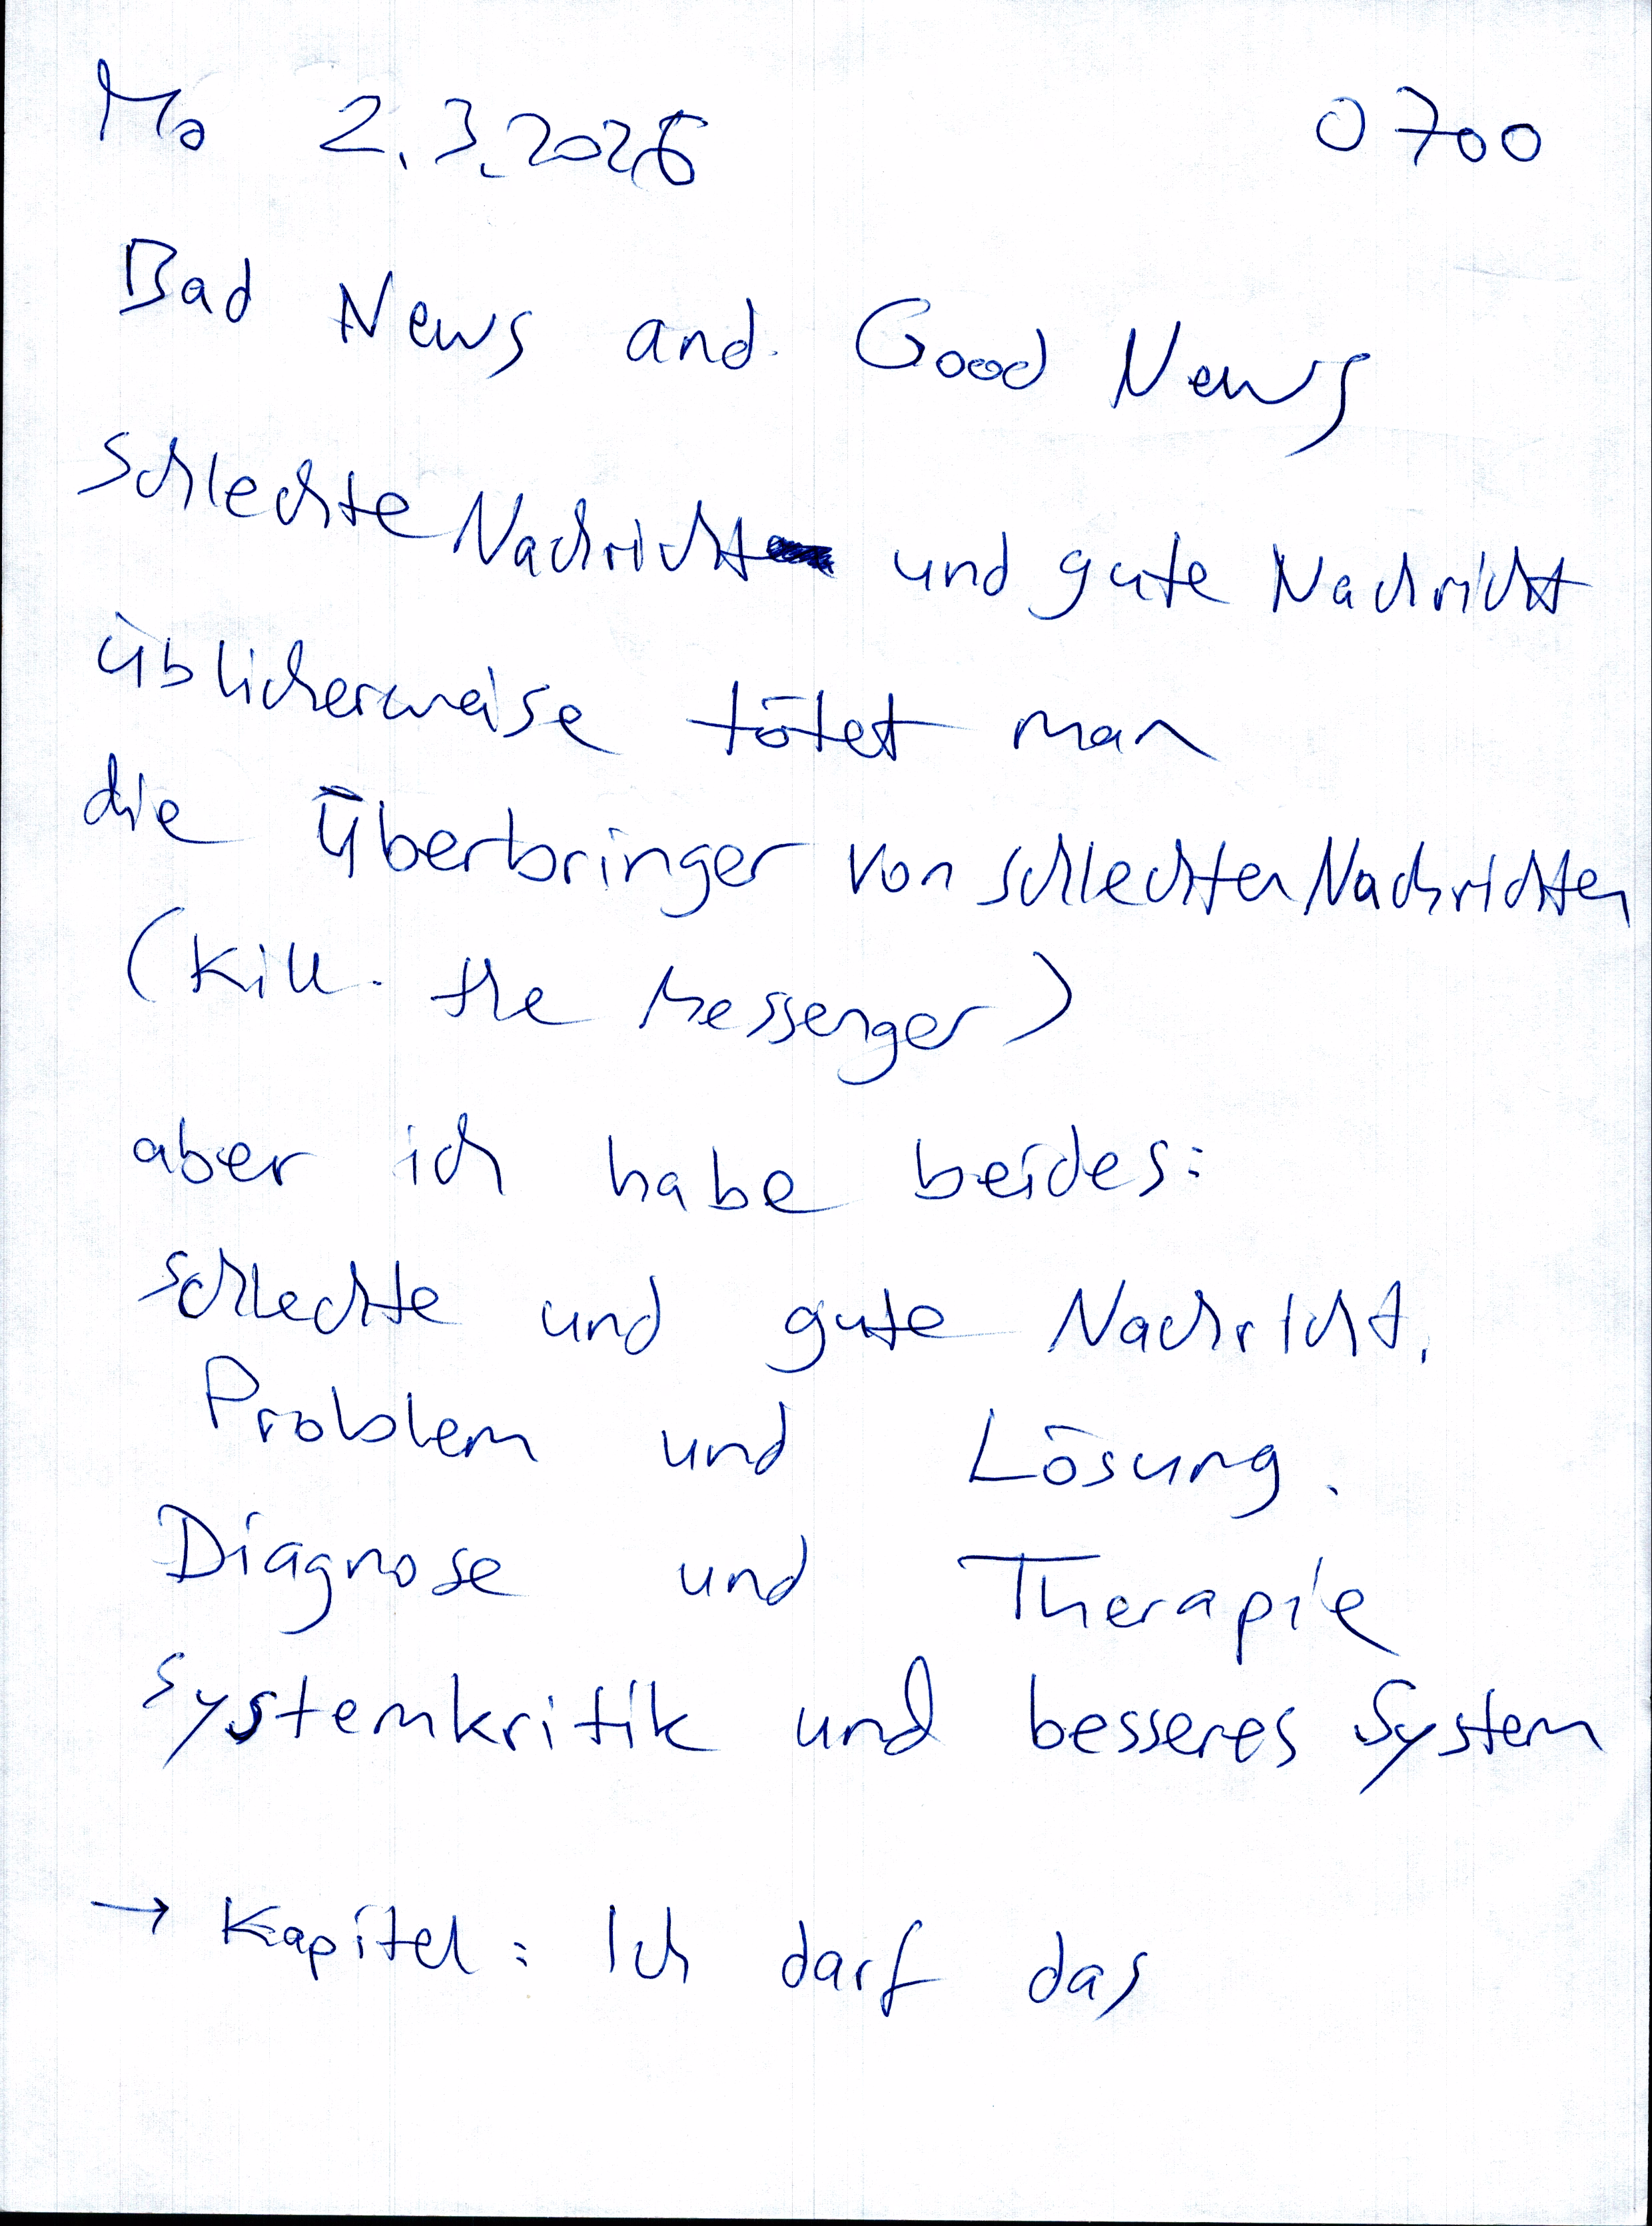 Mo 2.3.2026 0700
Bad News and Good News
Schlechte Nachricht und gute Nachricht
üblicherweise tötet man
die Überbringer von schlechten Nachrichten
(Kill the Messenger)
aber ich habe beides:
schlechte und gute Nachricht.
Problem und Lösung.
Diagnose und Therapie
Systemkritik und besseres System
→ Kapitel: Ich darf das